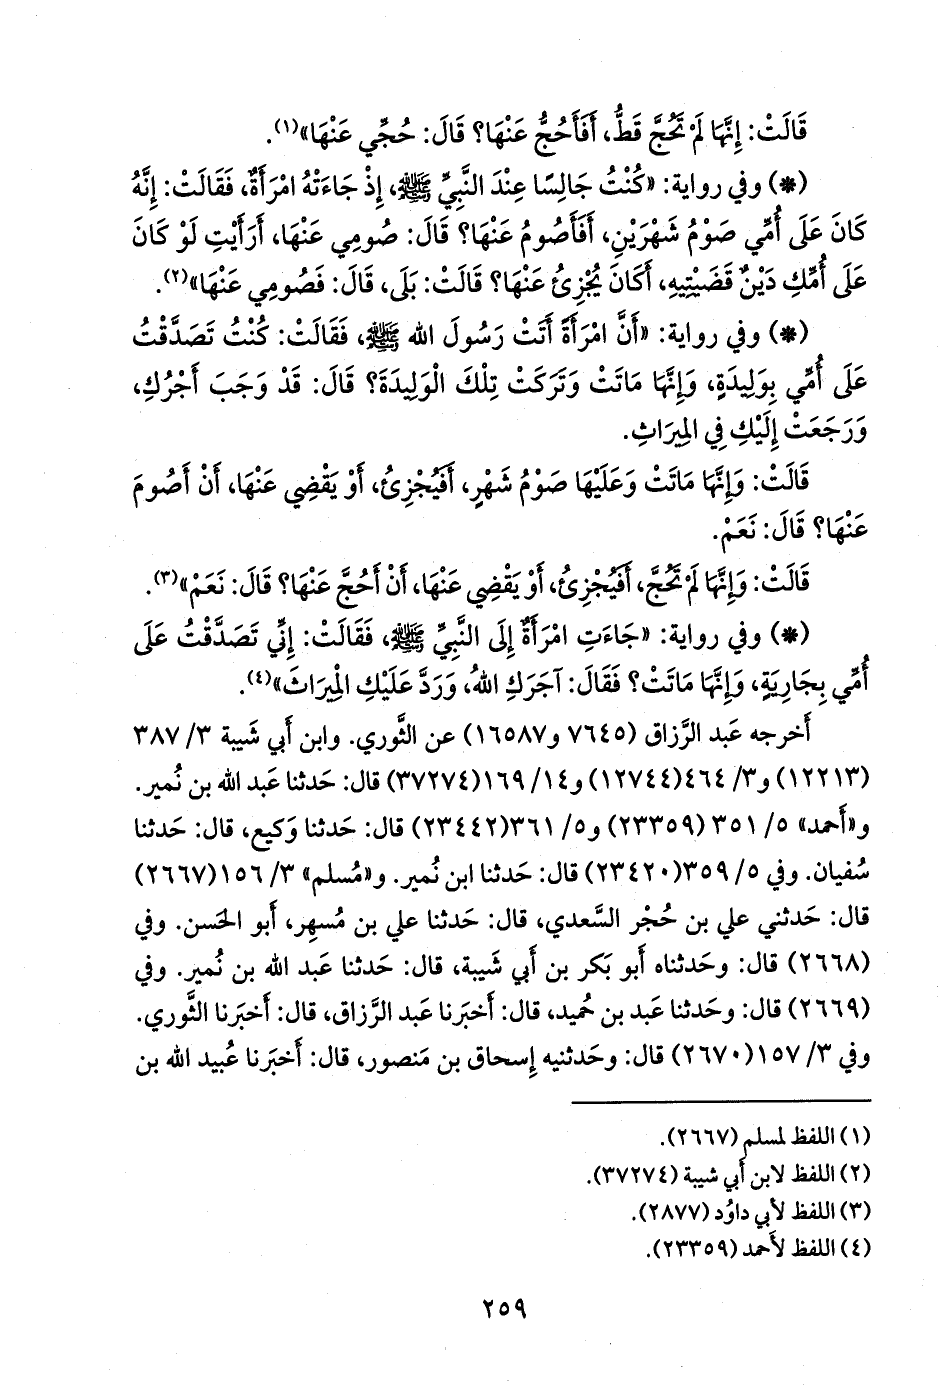 قَالَتْ: إِنَّهَا لَمْ تَحُجَّ قَطُّ، أَفَأَحُجُّ عَنْهَا؟ قَالَ: حُجِّي عَنْهَا»(١).
(*) وفي رواية: «كُنْتُ جَالِسًا عِنْدَ النَّبِيِّ ﷺ، إِذْ جَاءَتْهُ امْرَأَةٌ، فَقَالَتْ: إِنَّهُ
كَانَ عَلَى أُمِّي صَوْمُ شَهْرَيْنِ، أَفَأَصُومُ عَنْهَا؟ قَالَ: صُومِي عَنْهَا، أَرَأَيْتِ لَوْ كَانَ
عَلَى أُمِّكِ دَيْنٌ قَضَيْتِيهِ، أَكَانَ يُجْزِئُ عَنْهَا؟ قَالَتْ: بَلَى، قَالَ: فَصُومِي عَنْهَا»(٢).
(*) وفي رواية: «أَنَّ امْرَأَةً أَتَتْ رَسُولَ الله ﷺ، فَقَالَتْ: كُنْتُ تَصَدَّقْتُ
عَلَى أُمِّي بِوَلِيدَةٍ، وَإِنَّهَا مَاتَتْ وَتَرَكَتْ تِلْكَ الْوَلِيدَةَ؟ قَالَ: قَدْ وَجَبَ أَجْرُكِ،
وَرَجَعَتْ إِلَيْكِ فِي المِيرَاثِ.
قَالَتْ: وَإِنَّهَا مَاتَتْ وَعَلَيْهَا صَوْمُ شَهْرٍ، أَفَيُجْزِئُ، أَوْ يَقْضِي عَنْهَا، أَنْ أَصُومَ
عَنْهَا؟ قَالَ: نَعَمْ.
قَالَتْ: وَإِنَّهَا لَمْ تَحُجَّ، أَفَيُجْزِئُ، أَوْ يَقْضِي عَنْهَا، أَنْ أَحُجَّ عَنْهَا؟ قَالَ: نَعَمْ»(٣).
(*) وفي رواية: «جَاءَتِ امْرَأَةٌ إِلَى النَّبِيِّ ﷺ، فَقَالَتْ: إِنِّي تَصَدَّقْتُ عَلَى
أُمِّي بِجَارِيَةٍ، وَإِنَّهَا مَاتَتْ؟ فَقَالَ: آجَرَكِ اللهُ، وَرَدَّ عَلَيْكِ الْمِيرَاثَ»(٤).
أَخرجه عَبد الرَّزاق (٧٦٤٥ و١٦٥٨٧) عن الثَّوري. وابن أَبي شَيبة ٣/ ٣٨٧
(١٢٢١٣) و٣/ ٤٦٤(١٢٧٤٤) و١٤/ ١٦٩(٣٧٢٧٤) قال: حَدثنا عَبد الله بن نُمير.
و«أَحمد» ٥/ ٣٥١ (٢٣٣٥٩) و٥/ ٣٦١(٢٣٤٤٢) قال: حَدثنا وَكيع، قال: حَدثنا
سُفيان. وفي ٥/ ٣٥٩(٢٣٤٢٠) قال: حَدثنا ابن نُمير. و«مُسلم» ٣/ ١٥٦(٢٦٦٧)
قال: حَدثني علي بن حُجْر السَّعدي، قال: حَدثنا علي بن مُسهِر، أَبو الحَسن. وفي
(٢٦٦٨) قال: وحَدثناه أَبو بَكر بن أَبي شَيبة، قال: حَدثنا عَبد الله بن نُمير. وفي
(٢٦٦٩) قال: وحَدثنا عَبد بن حُميد، قال: أَخبَرنا عَبد الرَّزاق، قال: أَخبَرنا الثَّوري.
وفي ٣/ ١٥٧(٢٦٧٠) قال: وحَدثنيه إِسحاق بن مَنصور، قال: أَخبَرنا عُبيد الله بن
(١) اللفظ لمسلم (٢٦٦٧).
(٢) اللفظ لابن أَبي شيبة (٣٧٢٧٤).
(٣) اللفظ لأبي داوُد (٢٨٧٧).
(٤) اللفظ لأَحمد (٢٣٣٥٩).
٢٥٩